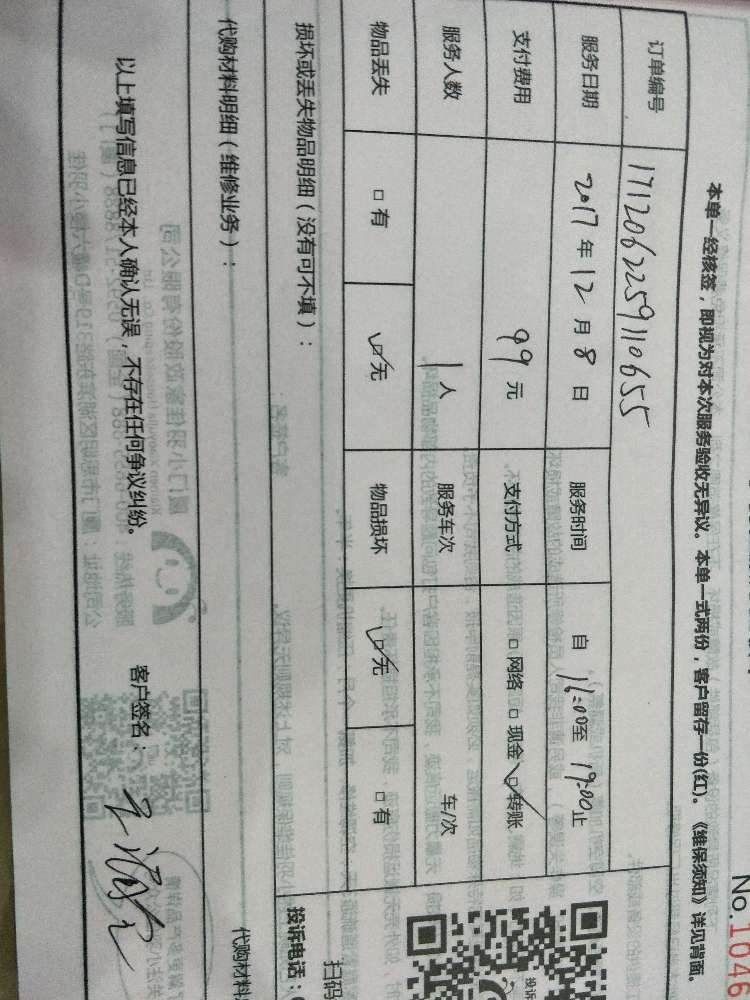 No.1046
本单一经核签，即视为对本次服务验收无异议。本单一式两份，客户留存一份(红)。《维保须知》详见背面。
订单编号 1712062259110655
服务日期 2017 年 12 月 8 日 服务时间 自 16:00至 19:00止
支付费用 99 元 支付方式 □ 网络 □ 现金 ☑ 转账
服务人数 1 人 服务车次 车/次
物品丢失 □ 有 ☑ 无 物品损坏 ☑ 无 □ 有
损坏或丢失物品明细（没有可不填）：
投诉电话：
扫码
代购材料明细（维修业务）：
代购材料
以上填写信息已经本人确认无误，不存在任何争议纠纷。 客户签名：